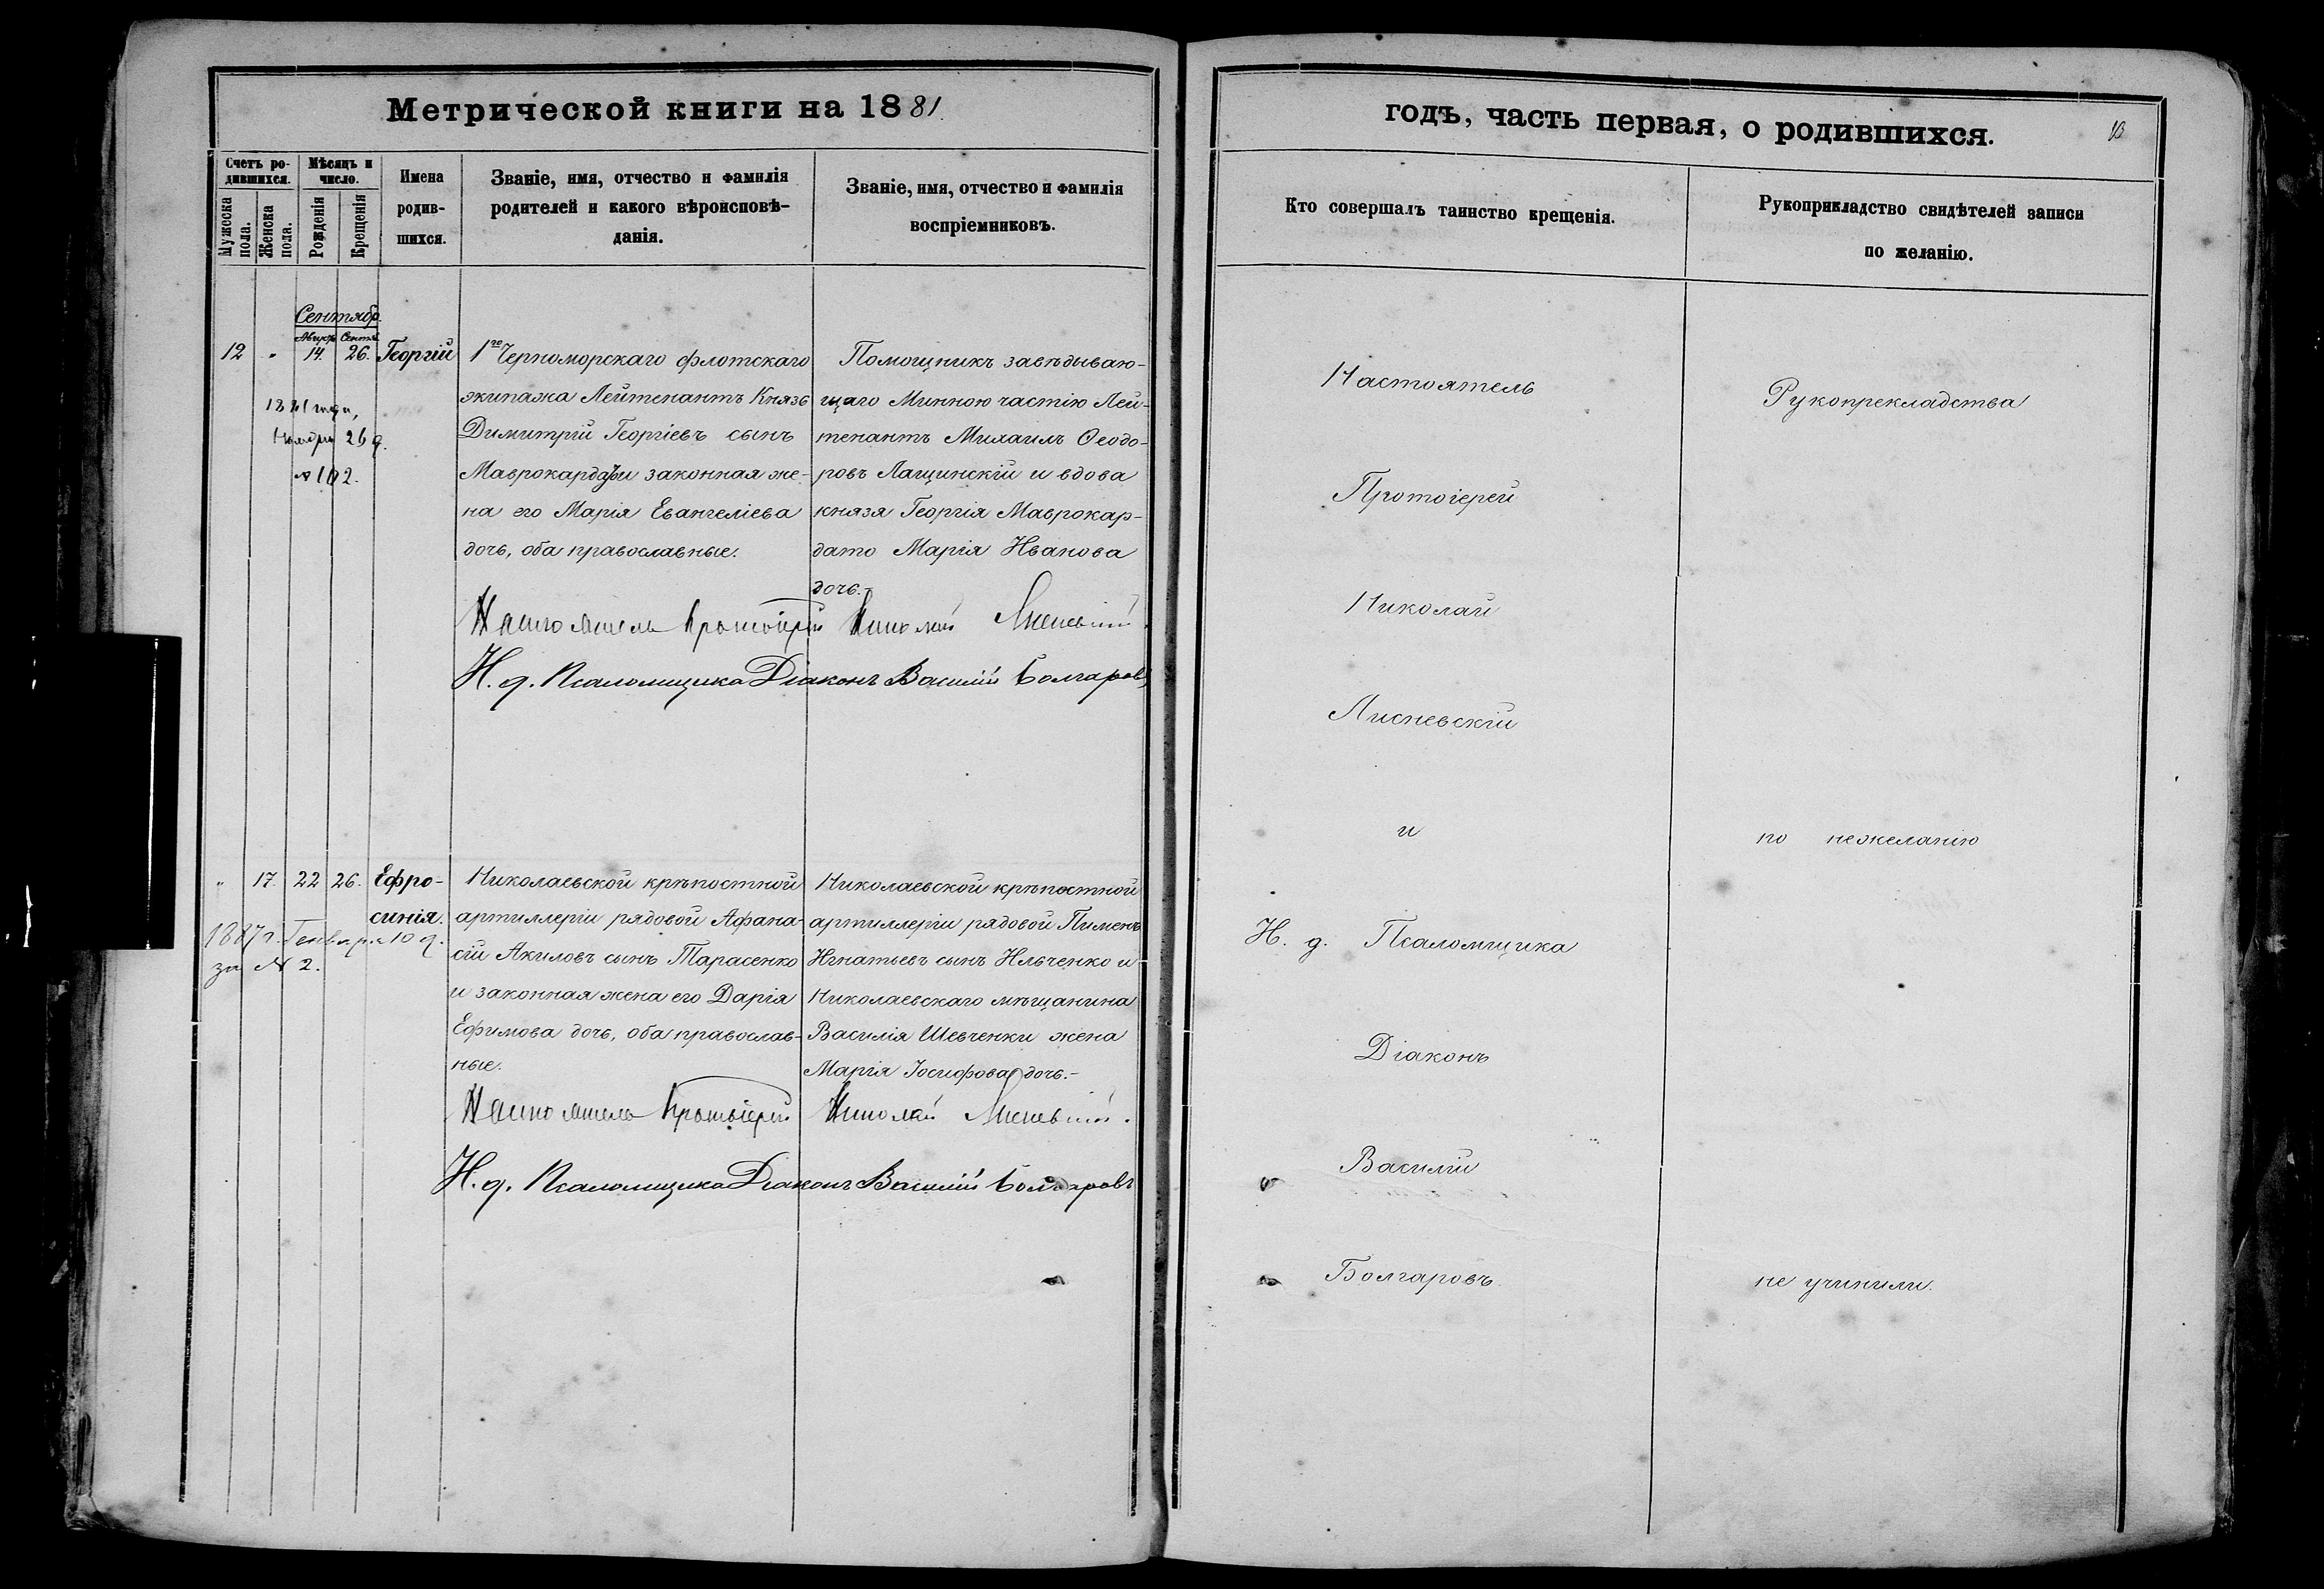 Метрической книги на 1881.
Счетъ ро-
дившихся.
Мѣсяцъ и
число.
Мужеска
пола.
Женска
пола.
Рожденія
Крещенія
Имена
родив-
шихся.
Званіе, имя, отчество и фамилія
родителей и какого вѣроисповѣ-
данія.
Званіе, имя, отчество и фамилія
воспріемниковъ.
Сентябр.
12 " 14. 26. Георгій
1881 года,
Ноября 26 д.
№ 102.
1го Черноморскаго флотскаго
экипажа Лейтенантъ Князь
Димитрій Георгіевъ сынъ
Маврокардато и законная же-
на его Марія Евангеліева
дочь, оба православные.
Помощникъ завѣдываю-
щаго Минною частію Лей-
тенантъ Михаилъ Ѳеодо-
ровъ Лащинскій и вдова
князя Георгія Маврокар-
дато Марія Иванова
дочь.
Настоятель Протоіерей Николай Лисневскій.
И. д. Псаломщика Діаконъ Василій Болгаровъ
" 17. 22 26. Ефро-
синія.
1887 г. Генваря 10 д.
за № 2.
Николаевской крѣпостной
артиллеріи рядовой Афана-
сій Акиловъ сынъ Тарасенко
и законная жена его Дарія
Ефимова дочь, оба православ-
ные.
Николаевской крѣпостной
артиллеріи рядовой Пименъ
Игнатьевъ сынъ Ильченко и
Николаевскаго мѣщанина
Василія Шевченки жена
Марія Іосифова дочь.-
Настоятель Протоіерей Николай Лисневскій.
И. д. Псаломщика Діаконъ Василій Болгаровъ
годъ, часть первая, о родившихся.
10
Кто совершалъ таинство крещенія.
Рукоприкладство свидѣтелей записи
по желанію.
Настоятель
Протоіерей
Николай
Лисневскій
и
И. д. Псаломщика
Діаконъ
Василій
Болгаровъ.
Рукопрекладства
по нежеланію
не учинили.